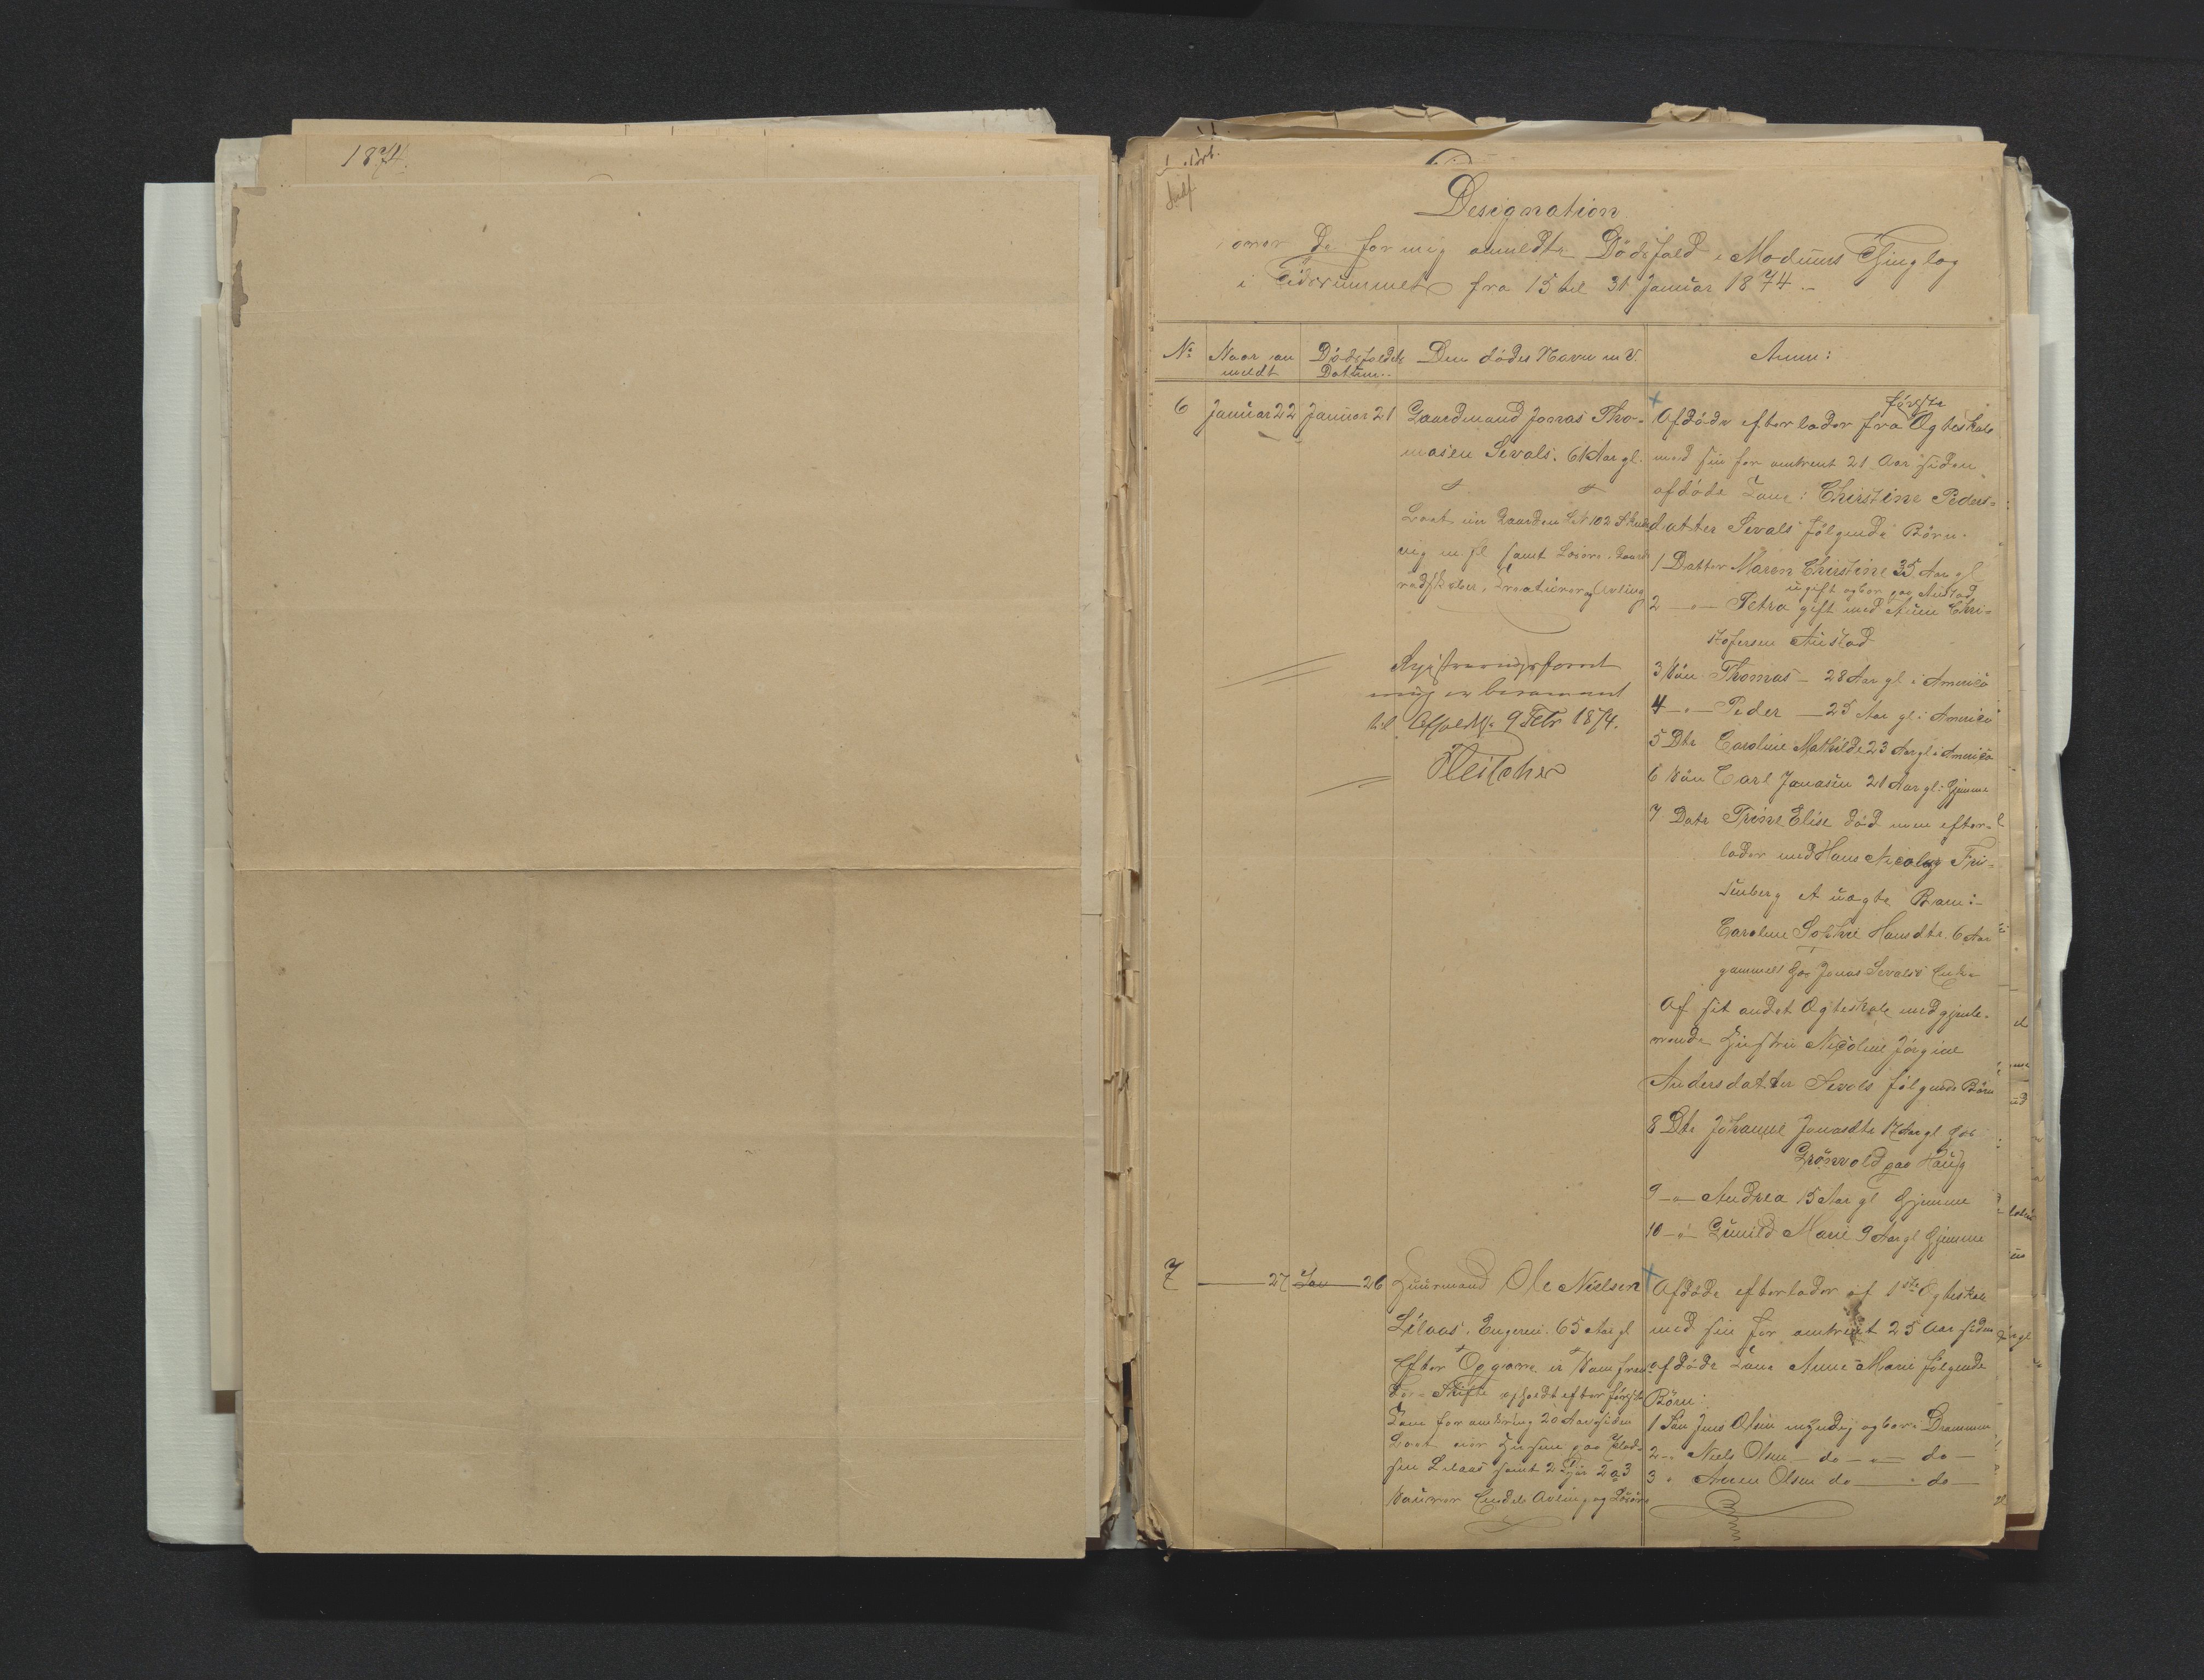 1874.
Designation
over de for mig anmeldte Dødsfald i Modums Thinglag
i Tidsrummet fra 15 til 31 Januar 1874.-
No
Naar an
meldt
Dødsfaldets
Datum..
Den dødes Navn m V.
Anm:
6
Januar 22
Januar 21
Gaardmand Jonas Tho-
masen Sevals. 61 Aar gl.
Boet eier Gaarden LN 102
vig m. fl samt Løsøre, Gaards
redskaber, Kreaturer og Avling
Registreringsforret
ning er berammet
til Afholdelse 9 Febr 1874.
Afdøde efterlader fra første Ægteskab
med sin for omtrent 21 Aar siden
afdøde Kone: Christine Peders-
datter Sevals følgende Børn.
1 Datter Maren Christine 35 Aar gl
ugift og bor paa Austad
2 -"- Petra gift med Auen Chri-
stofersen Austad
3 Søn Thomas - 28 Aar gl. i America
4 -"- Peder - 25 Aar gl. i America
5 Dtr Caroline Mathilde 23 Aar gl i America
6 Søn Carl Jonasen 21 Aar gl: hjemme
7 Datr Trine Elise død men efter-
lader med Hans Nicolay Fri-
senberg et uægte Barn:-
Caroline Sophie Hansdtr. 6 Aar
gammelt hos Jonas Sevals's Enke
Af sit andet Ægteskab med gjenle-
vende Hustru Nicoline Jørgine
Andersdatter Sevals følgende Børn
8 Dtr Johanne Jonasdtr 17 Aar gl hos
Grønvold paa Haug
9 -"- Andrea 15 Aar gl hjemme
10 -"- Gunild Marie 9 Aar gl hjemme
7
27
Jan 26
Huusmand Ole Nielsen
Lilaas. Engerei. 65 Aar gl
Efter Opgave er Samfræn-
de-Skifte afholdt efter første
Kone for omkring 20 Aar siden
Boet eier Husene paa Plad-
sen Lilaas samt 2 Kjør 2 a 3
Sauer Endel Avling og Løsøre
Afdøde efterlader af 1ste Ægteskab
med sin for omtrent 25 Aar siden
afdøde Kone Anne Marie følgende
Børn:
1 Søn Jens Olsen myndig og bor i Drammen
2 -"- Niels Olsen - do -"- do -
3 " Auen Olsen do - " do -